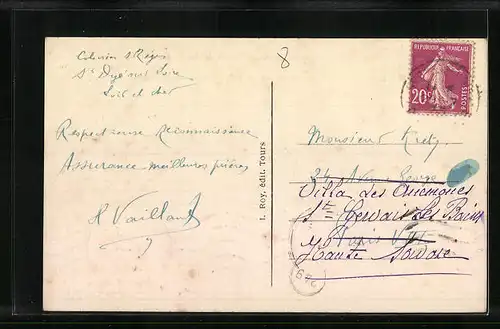 Colonie St Régis
St Dyé sur Loire
Loir et cher
Respectueuse Reconnaissance
Assurance meilleures prières
R Vaillant
I. Roy, édit. Tours
8
REPUBLIQUE FRANÇAISE
20c
POSTES
Monsieur Kretz
24
Villa des Anemones
St Gervais les Bains
Paris VIII
Haute Savoie